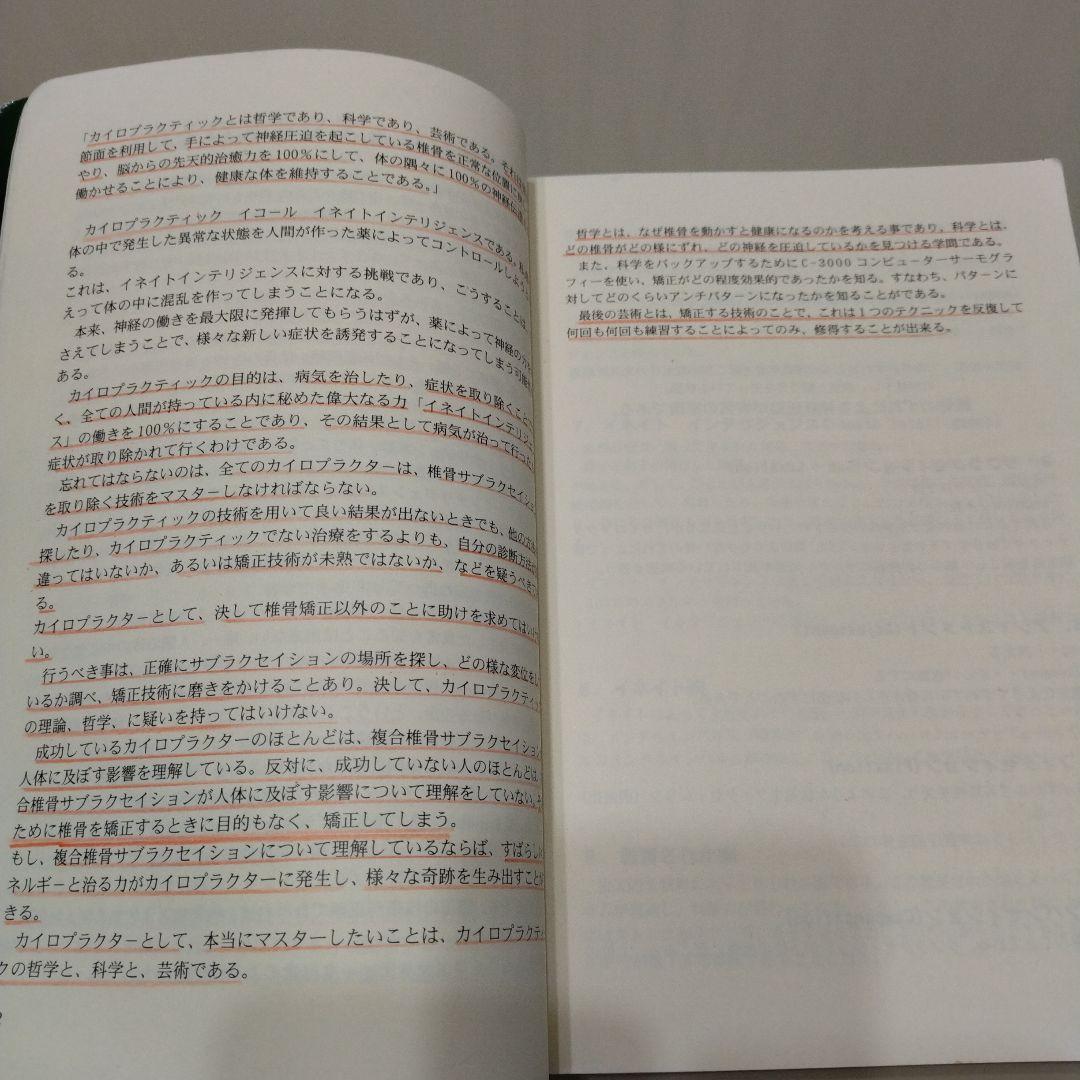 「カイロプラクティックとは哲学であり、科学であり、芸術である。それは
節面を利用して、手によって神経圧迫を起こしている椎骨を正常な位置に
やり、脳からの先天的治癒力を100%にして、体の隅々に100%の神経伝達
働かせることにより、健康な体を維持することである。」
カイロプラクティック イコール イネイトインテリジェンスである。
体の中で発生した異常な状態を人間が作った薬によってコントロールしよう
る。
これは、イネイトインテリジェンスに対する挑戦であり、こうすることは
えって体の中に混乱を作ってしまうことになる。
本来、神経の働きを最大限に発揮してもらうはずが、薬によって神経の
さえてしまうことで、様々な新しい症状を誘発することになってしまう可能
ある。
カイロプラクティックの目的は、病気を治したり、症状を取り除くこと
く、全ての人間が持っている内に秘めた偉大なる力「イネイトインテリジェ
ス」の働きを100%にすることであり、その結果として病気が治って行った
症状が取り除かれて行くわけである。
忘れてはならないのは、全てのカイロプラクターは、椎骨サブラクセイション
を取り除く技術をマスターしなければならない。
カイロプラクティックの技術を用いて良い結果が出ないときでも、他の
探したり、カイロプラクティックでない治療をするよりも、自分の診断方法
違ってはいないか、あるいは矯正技術が未熟ではないか、などを疑うべき
る。
カイロプラクターとして、決して椎骨矯正以外のことに助けを求めてはい
い。
行うべき事は、正確にサブラクセイションの場所を探し、どの様な変位を
いるか調べ、矯正技術に磨きをかけることあり。決して、カイロプラクティッ
の理論、哲学、に疑いを持ってはいけない。
成功しているカイロプラクターのほとんどは、複合椎骨サブラクセイション
人体に及ぼす影響を理解している。反対に、成功していない人のほとんどは
合椎骨サブラクセイションが人体に及ぼす影響について理解をしていない。
ために椎骨を矯正するときに目的もなく、矯正してしまう。
もし、複合椎骨サブラクセイションについて理解しているならば、すばらし
ネルギーと治る力がカイロプラクターに発生し、様々な奇跡を生み出すこと
きる。
カイロプラクターとして、本当にマスターしたいことは、カイロプラクティ
クの哲学と、科学と、芸術である。
哲学とは、なぜ椎骨を動かすと健康になるのかを考える事であり、科学とは、
どの椎骨がどの様にずれ、どの神経を圧迫しているかを見つける学問である。
また、科学をバックアップするためにC-3000コンピューターサーモグラ
フィーを使い、矯正がどの程度効果的であったかを知る。すなわち、パターンに
対してどのくらいアンチパターンになったかを知ることがである。
最後の芸術とは、矯正する技術のことで、これは1つのテクニックを反復して
何回も何回も練習することによってのみ、修得することが出来る。